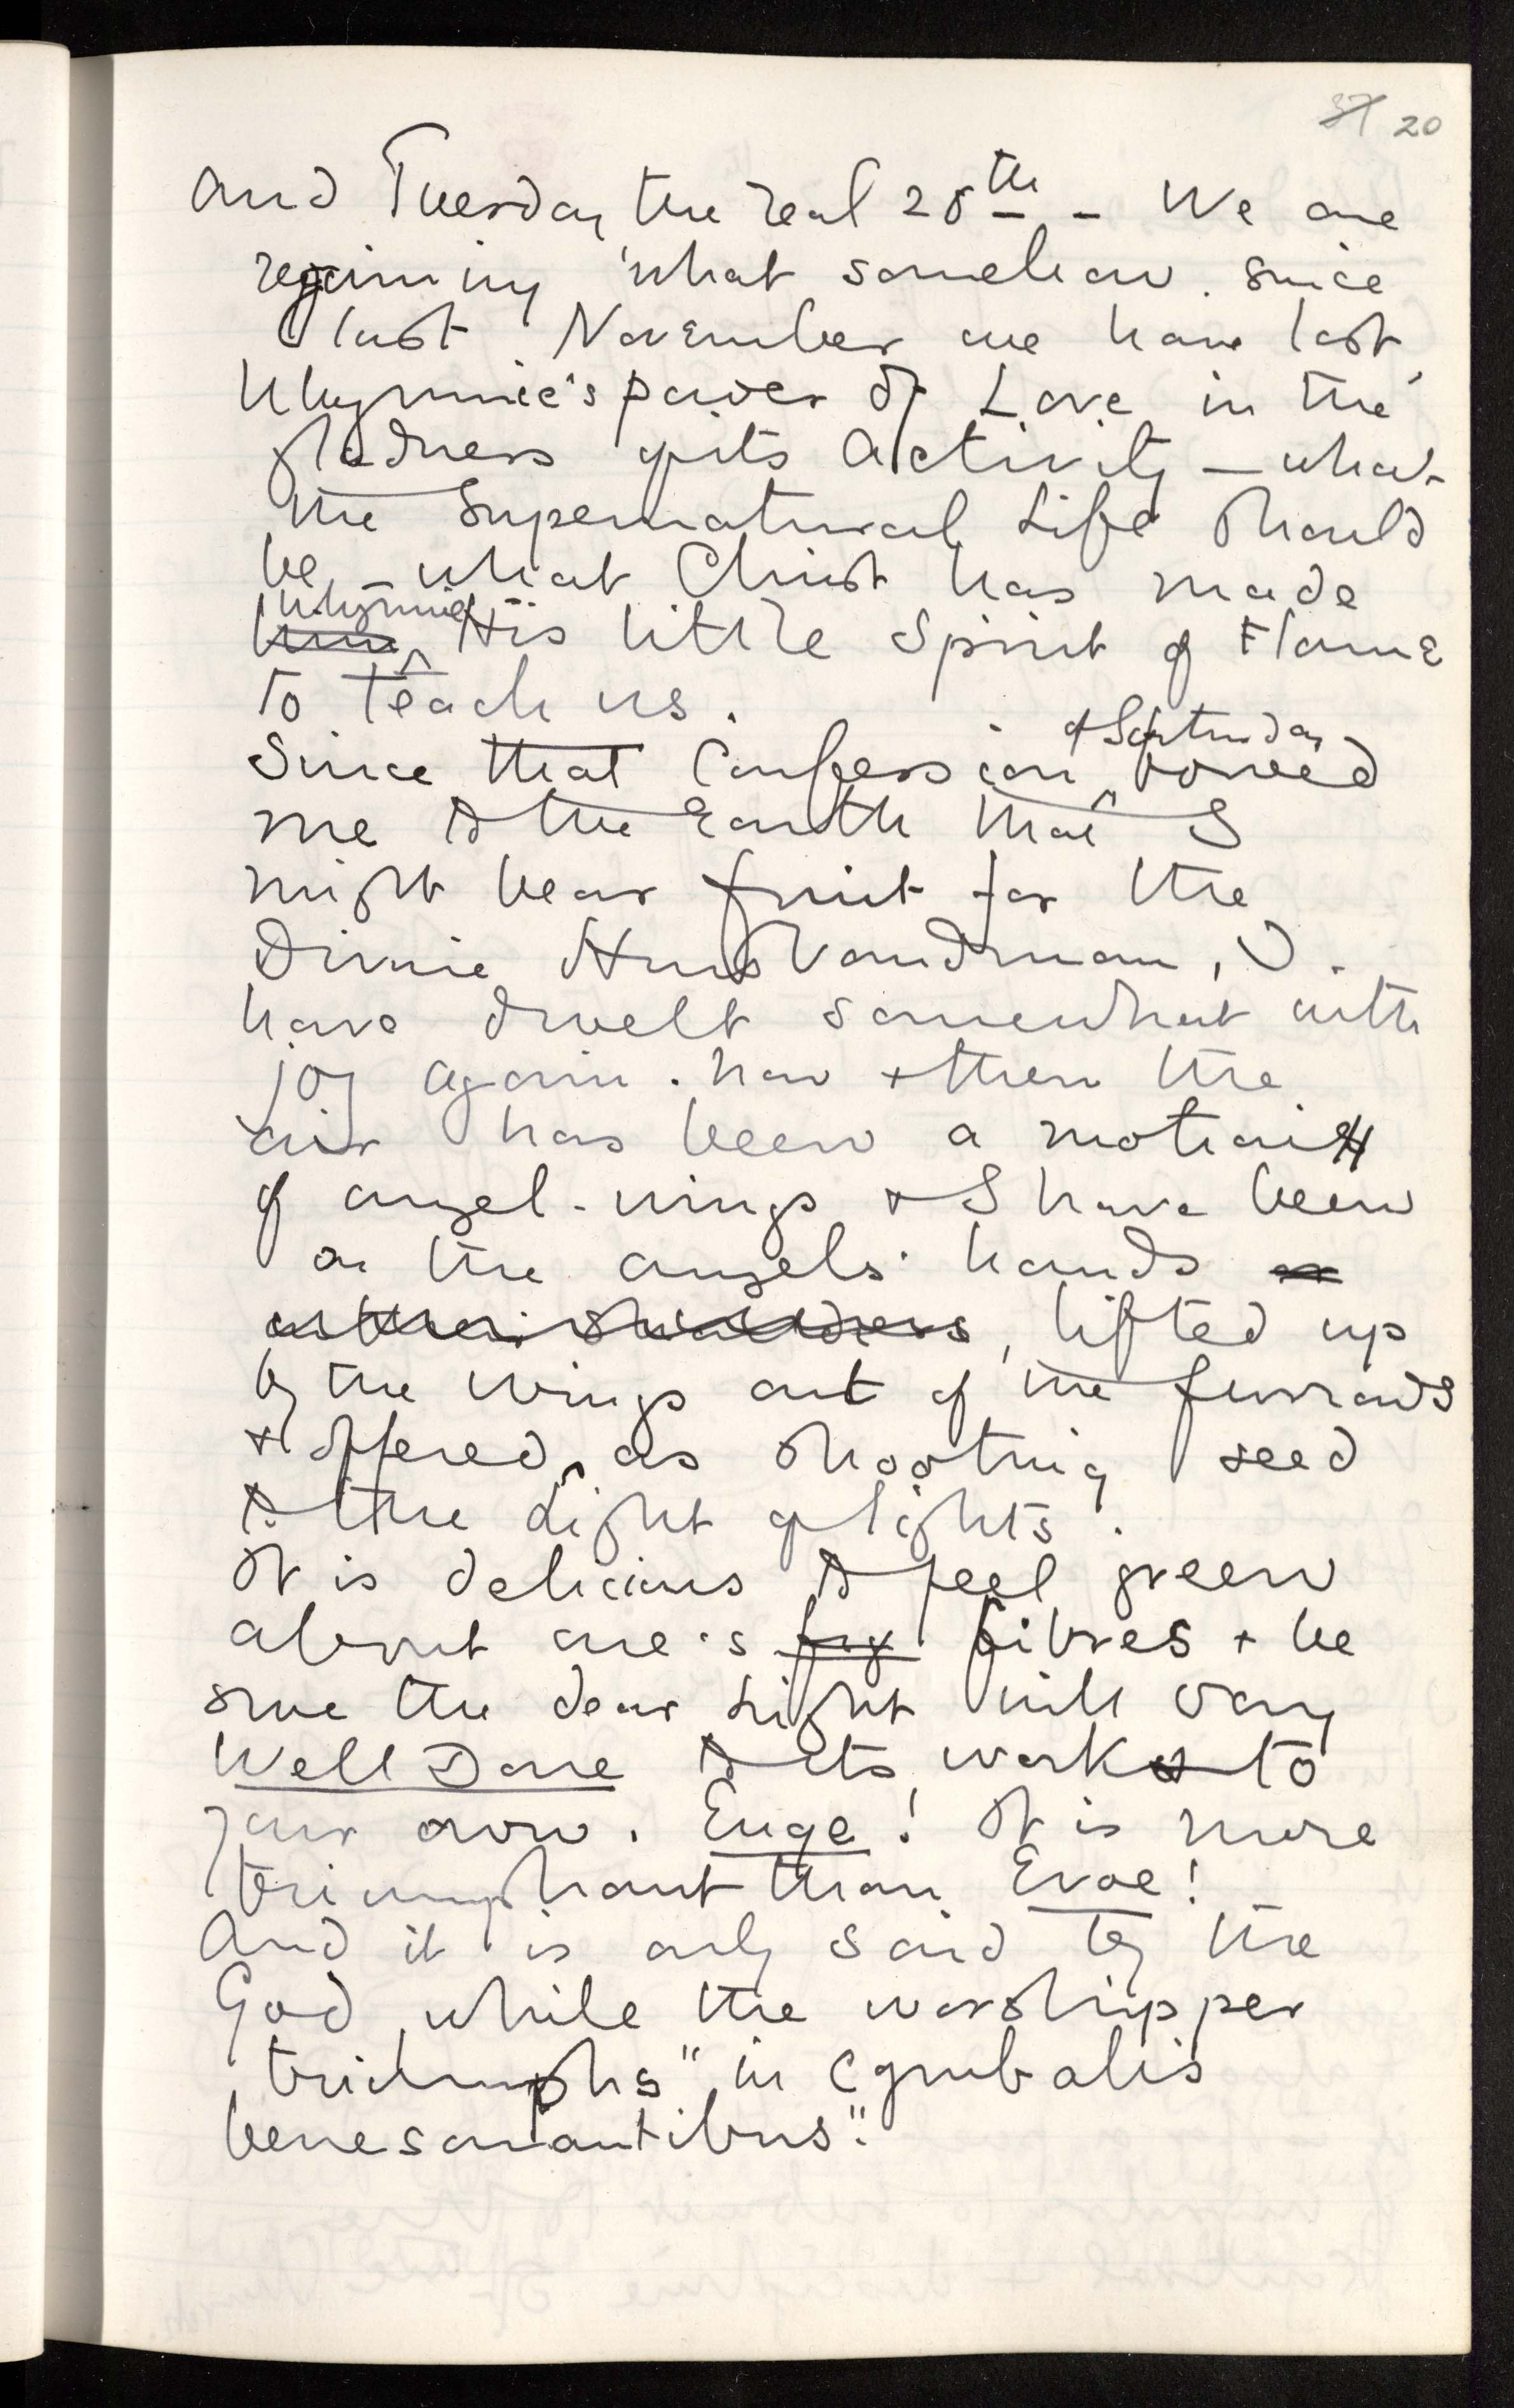 20
And Tuesday the real 28th - We are
regaining what somehow. since
last November we have lost,
Whymmie's power of Love in the
gladness of its activity — what
the Supernatural Life should
be, - what Christ has made
Whymmie
him, His little Spirit of Flame
to teach us.
of Saturday
Since that Confession bowed
me to the Earth that I
might bear fruit for the
Divine Husbandman, I
have dwelt somewhat with
joy again. now + then the
air has been a motion
of angel-wings + I have been
on the angels' hands or
on their shoulders, lifted up
by the wings out of the furrows
+ offered, as shooting seed
to the Light of lights.
It is delicious to feel green
about one's fibres + be
sure the dear Light will say
Well Done to its work & to
your own. Euge! It is more
triumphant than Evoe!
And it is only said by the
God, while the worshipper
triumphs "in cymbalis
benesonantibus".